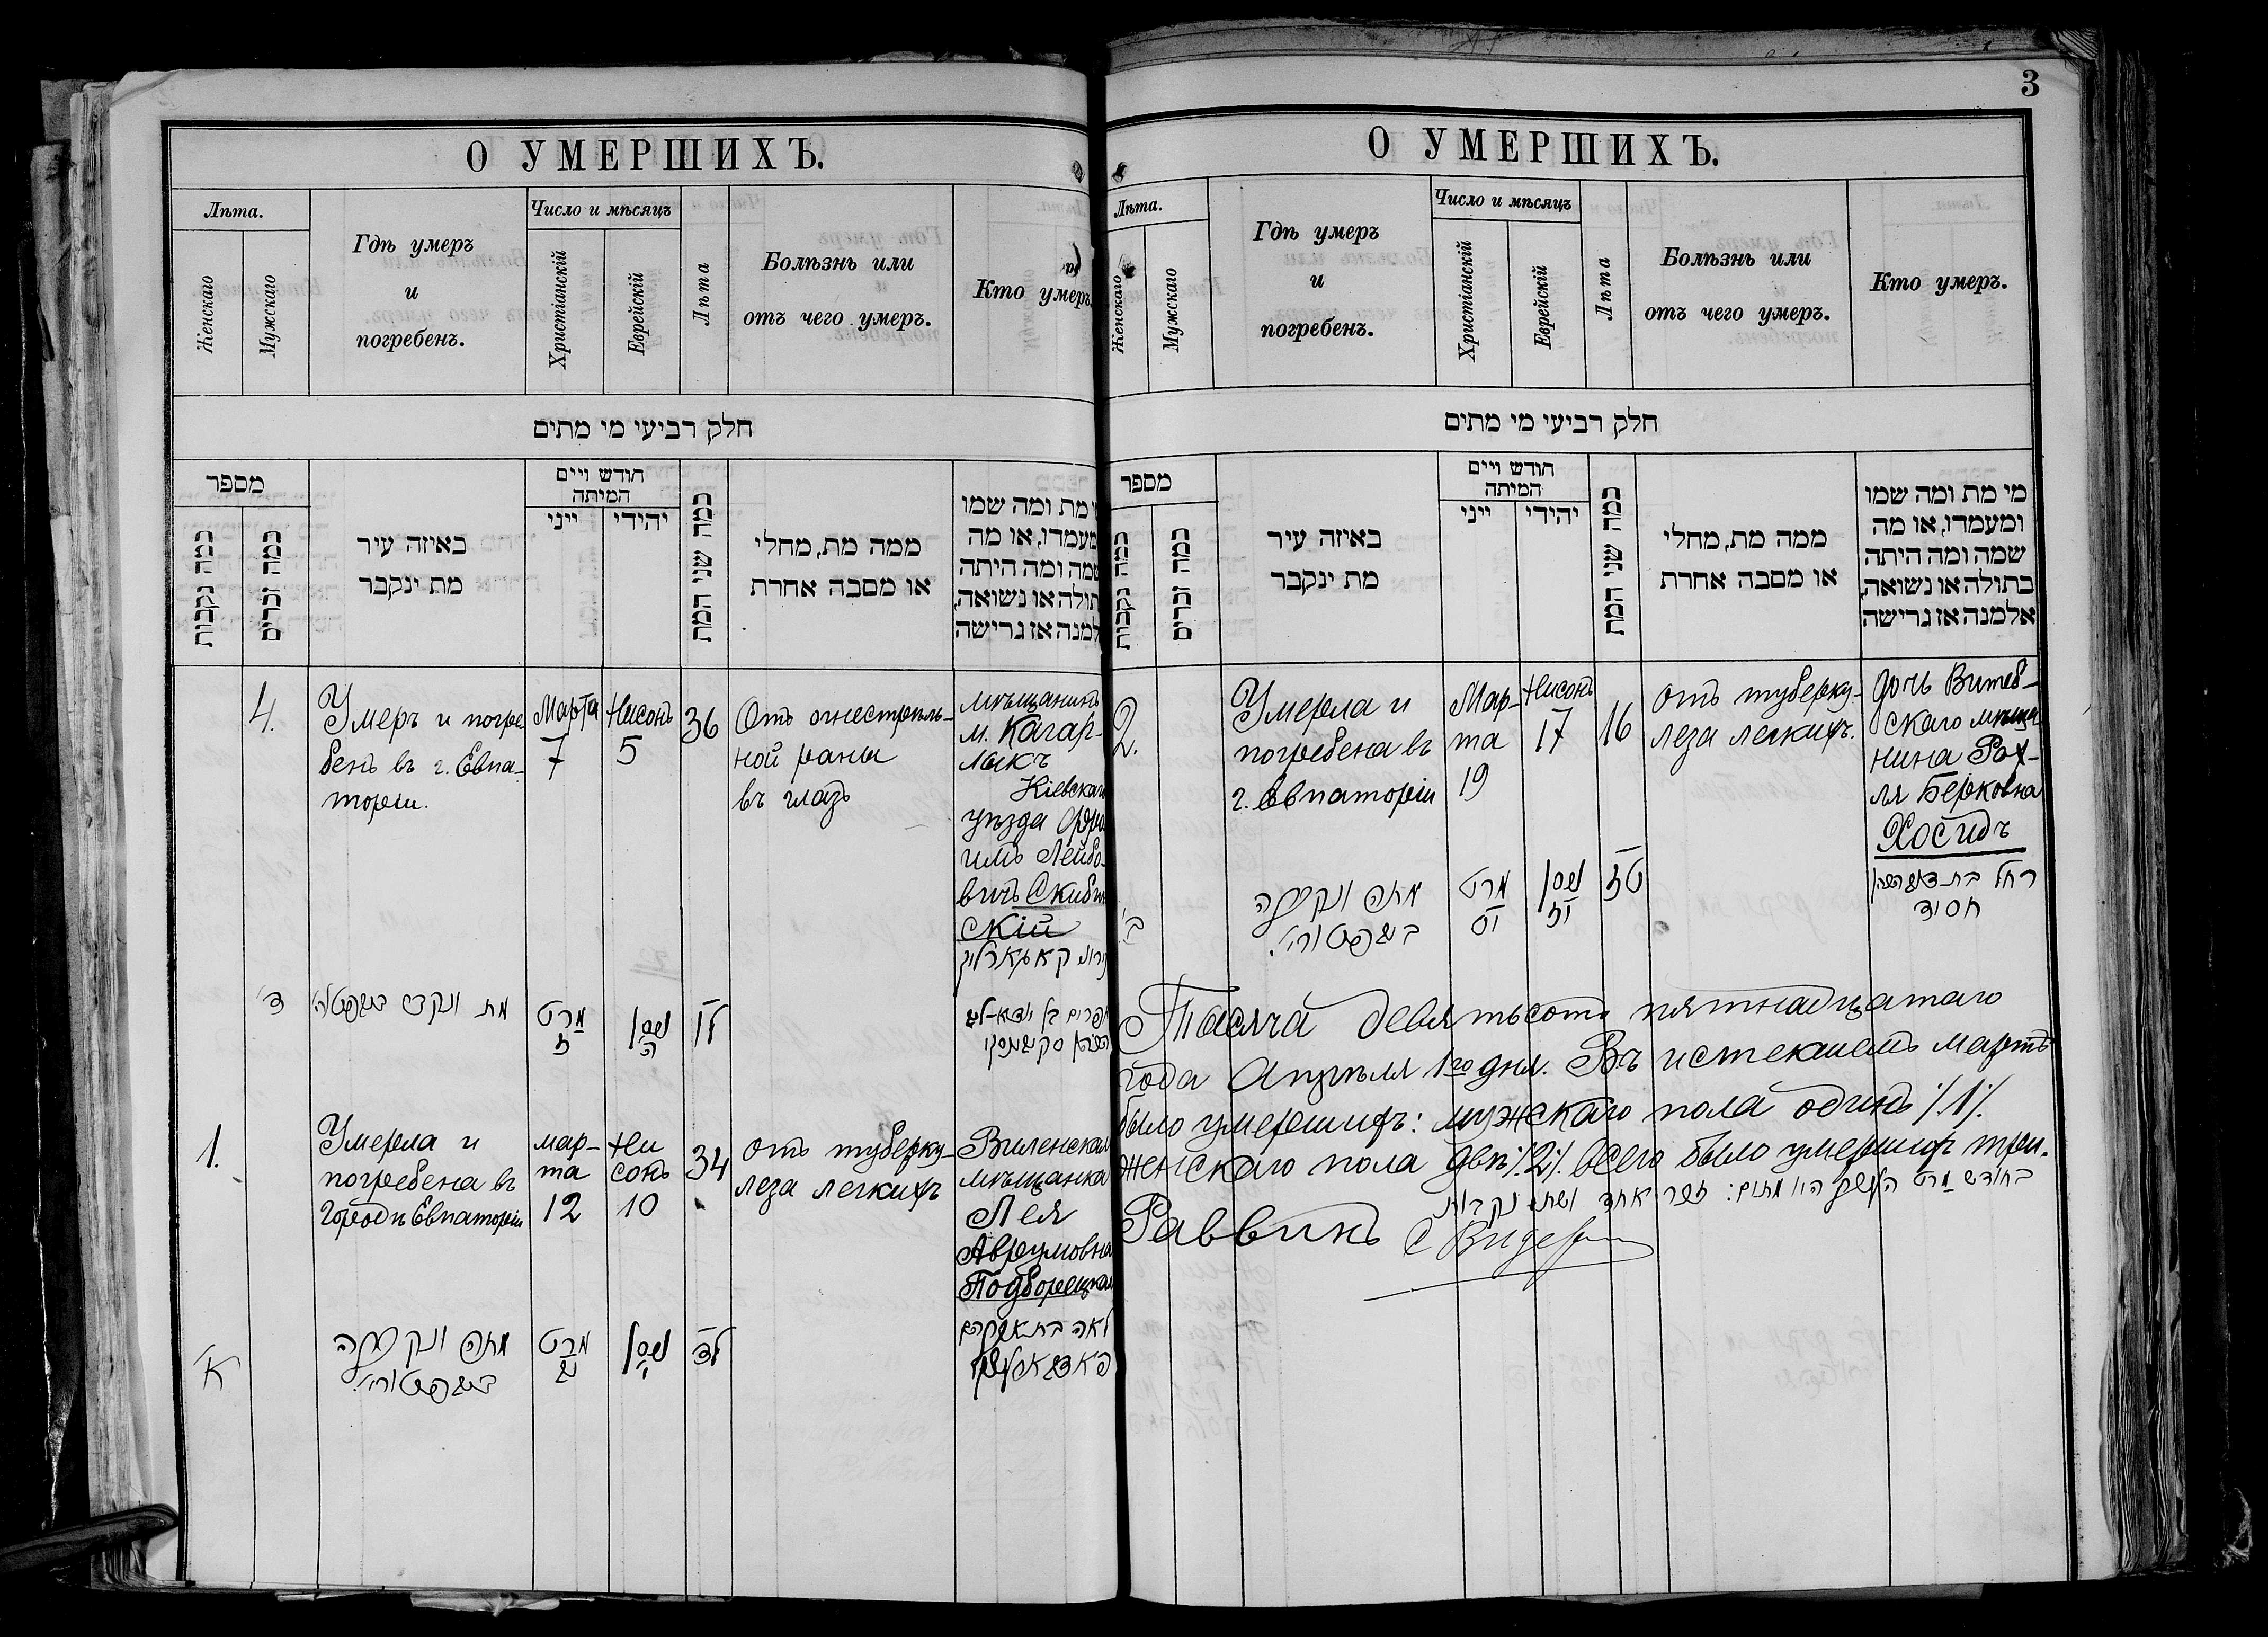 О УМЕРШИХЪ.
Лѣта.
Женскаго
Мужскаго
Гдѣ умеръ
и
погребенъ.
Число и мѣсяцъ
Христіанскій
Еврейскій
Лѣта
Болѣзнь или
отъ чего умеръ.
Кто умеръ.
חלק רביעי מי מתים
מספר
כמה נקבות
כמה זכרים
באיזה עיר
מת ינקבר
חודש ויים
המיתה
ייני
יהודי
כמה שני המת
ממה מת, מחלי
או מסבה אחרת
מת ומה שמו
מעמדו, או מה
שמה ומה היתה
תולה או נשואה,
למנה אז גרישה
4.
Умеръ и погре
бенъ въ г. Евпа-
торіи.
Марта
7
Нисонъ
5
36
Отъ огнестрѣль-
ной раны
въ глазъ
мѣщанинъ
м. Кагар-
лыкъ
Кіевскаго
уѣзда Эфра
имъ Лейбо-
вичъ Скибин
скій
ד'
מת ונקבר
מרט
ז
ניסן
ה
לו
1.
Умерла и
погребена въ
городѣ Евпаторіи
мар-
та
12
Ни
сонъ
10
34
отъ туберку-
леза легкихъ
Виленская
мѣщанка
Лея
Аврумовна
Подборецкая
א'
מתה ונקברה
מרט
יב
ניסן
י
לד
לאה בת אברהם
3
О УМЕРШИХЪ.
Лѣта.
Женскаго
Мужскаго
Гдѣ умеръ
и
погребенъ.
Число и мѣсяцъ
Христіанскій
Еврейскій
Лѣта
Болѣзнь или
отъ чего умеръ.
Кто умеръ.
חלק רביעי מי מתים
מספר
כמה נקבות
כמה זכרים
באיזה עיר
מת ינקבר
חודש ויים
המיתה
ייני
יהידי
כמה שני המת
ממה מת, מחלי
או מסבה אחרת
מי מת ומה שמו
ומעמדו, או מה
שמה ומה היתה
בתולה או נשואה,
אלמנה אז גרישה
2.
Умерла и
погребена въ
г. Евпаторіи
Мар-
та
19
Нисонъ
17
16
отъ туберку-
леза легкихъ.
дочь Витеб-
скаго мѣща
нина Рах-
ля Берковна
Хосидъ
ב'
מתה ונקברה
מרט
יט
ניסן
יז
טז
רחל בת
חסיד
Тысяча девятьсотъ пятнадцатаго
года Апрѣля 1го дня. Въ истекшемъ мартѣ
было умершихъ: мужскаго пола одинъ /.1/.
женскаго пола двѣ /.2/. всего было умершихъ три.
בחודש מרט היו מתים: זכר אחד ושתי נקבות
Раввинъ